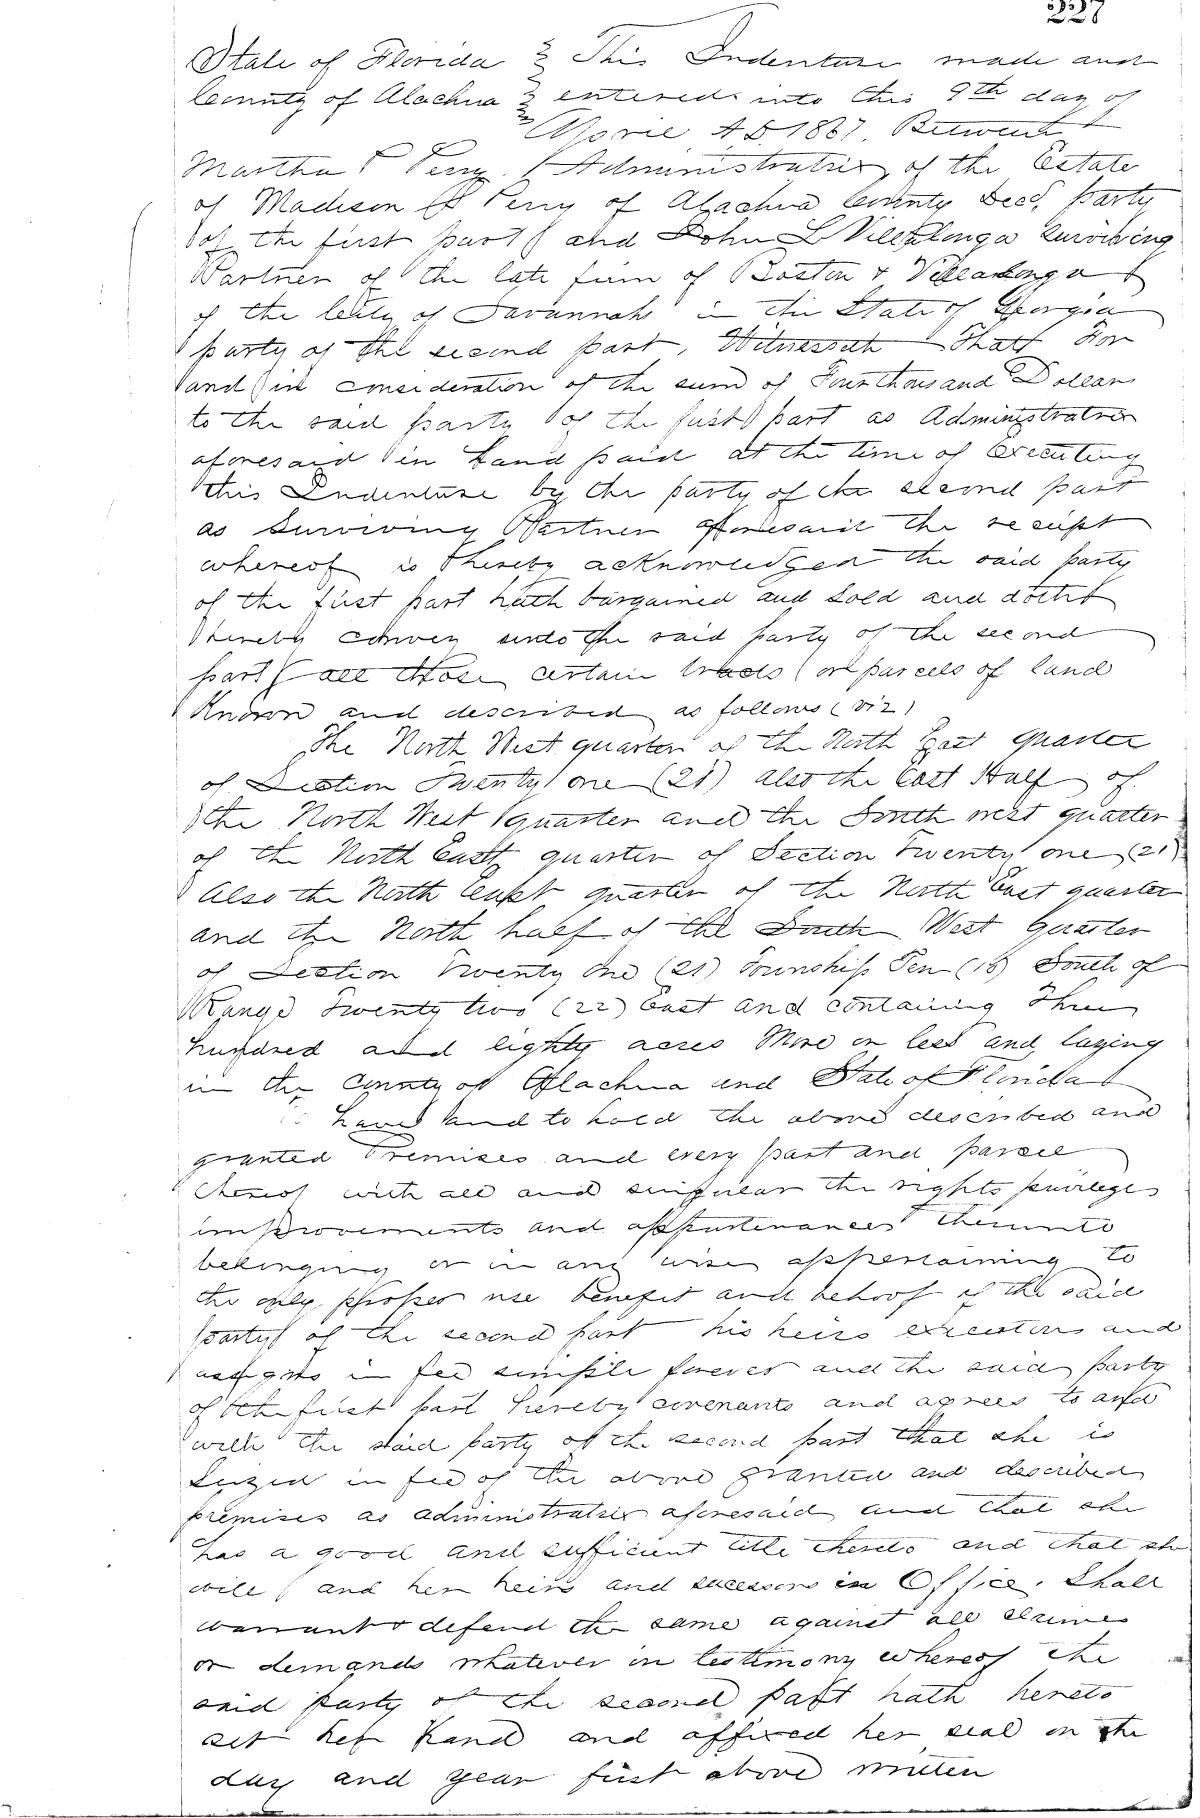 227
State of Florida } This Indenture made and
County of Alachua } entered into this 9th day of
April A.D. 1867 Between
Martha Perry Administratrix of the Estate
of Madison S Perry of Alachua County Decd. party
of the first part and John L Villalonga Surviving
Partner of the late firm of Boston & Villalonga
of the City of Savannah in the State of Georgia
party of the second part, Witnesseth That For
and in consideration of the sum of Four thousand Dollars
to the said party of the first part as Administratrix
aforesaid in hand paid at the time of Executing
this Indenture by the party of the second part
as Surviving Partner aforesaid the receipt
whereof is hereby acknowledged the said party
of the first part hath bargained and Sold and doth
hereby convey unto the said party of the second
part all those certain tracts or parcels of land
Known and described as follows (viz)
The North West quarter of the North East quarter
of Section Twenty one (21) also the East Half of
the North West quarter and the South west quarter
of the North East quarter of Section Twenty one (21)
Also the North East quarter of the North East quarter
and the North half of the South West quarter
of Section Twenty One (21) Township Ten (10) South of
Range Twenty two (22) East and containing Three
hundred and eighty acres More or less and laying
in the County of Alachua and State of Florida
have and to hold the above described and
granted Premises and every part and parcel
thereof with all and singular the rights privileges
improvements and appurtenances thereunto
belonging or in any wise appertaining to
the only proper use benefit and behoof of the said
party of the second part his heirs executors and
assigns in fee simple forever and the said party
of the first part hereby covenants and agrees to and
with the said party of the second part that she is
Seized in fee of the above granted and described
premises as administratrix aforesaid and that she
has a good and sufficient title thereto and that she
will and her heirs and sucessors in Office. Shall
warrant & defend the same against all claims
or demands whatever in testimony whereof the
said party of the second part hath hereto
set her hand and affixed her seal on the
day and year first above written